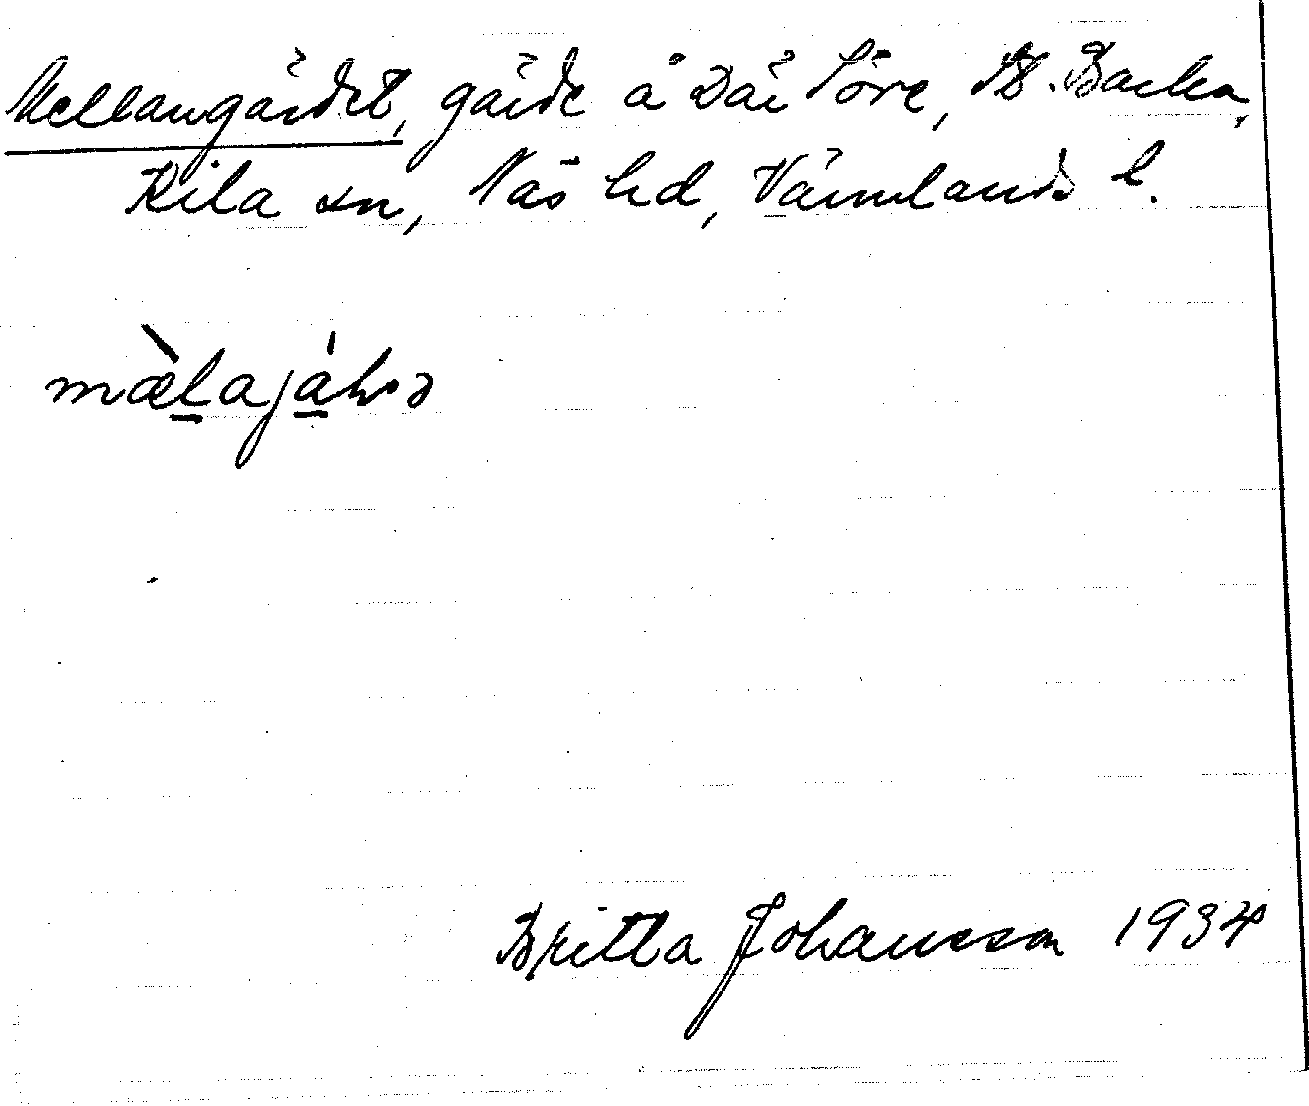 Mellangärdet, gärde å Där Söre, St. Backa,
Kila sn, Näs hd, Värmlands l.
mæ̀lajáɫə
Britta Johansson 1934